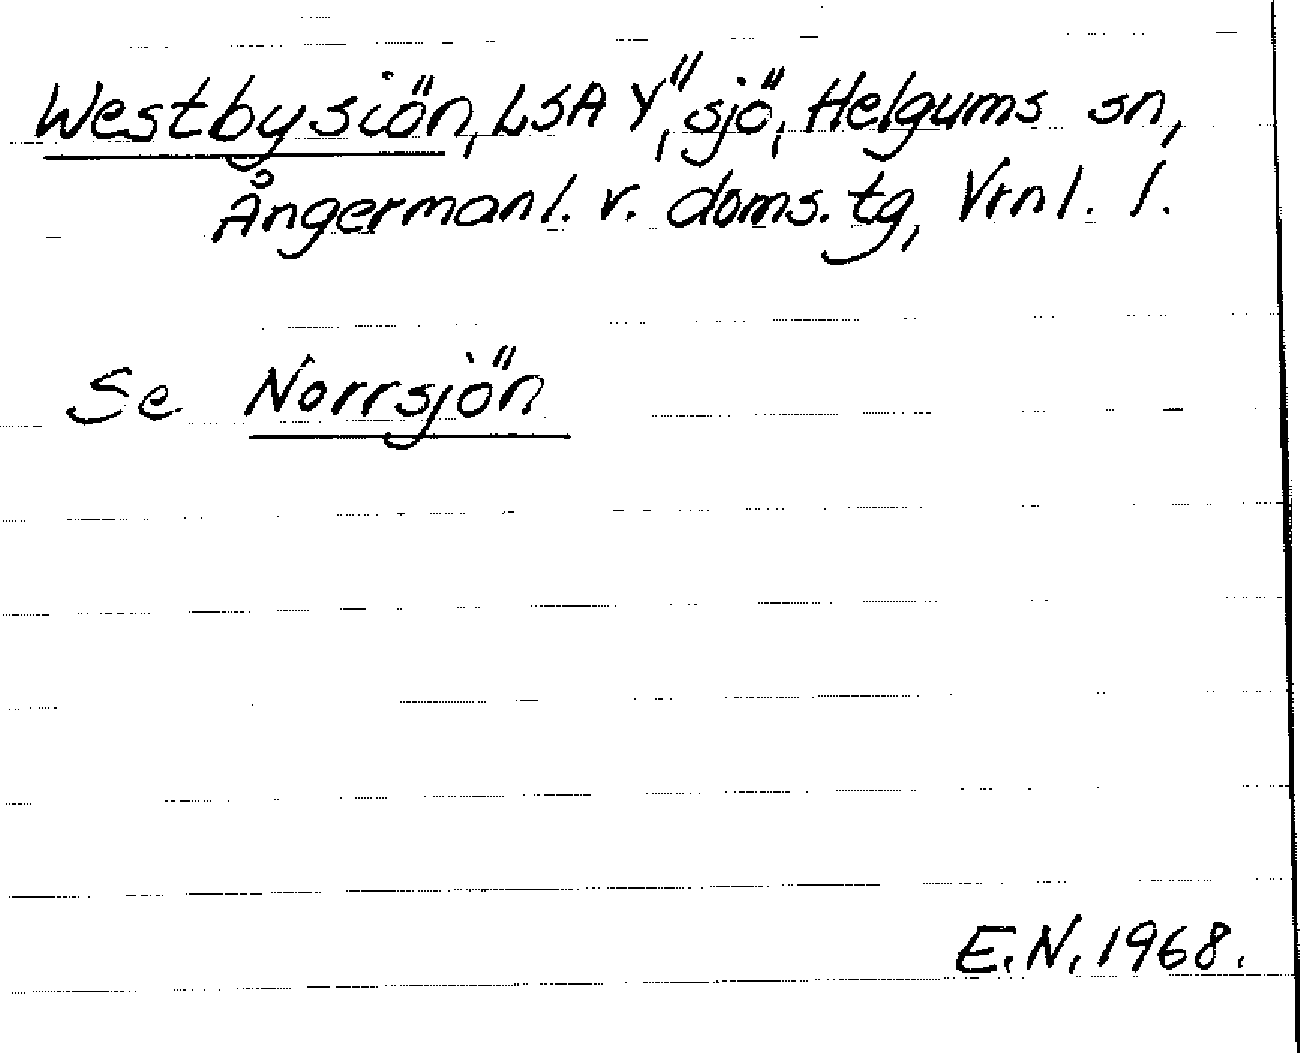 Westbysiön, LSA Y", sjö, Helgums sn,
Ångermanl. v. doms. tg, Vrnl. l.
Se Norrsjön
E.N. 1968.